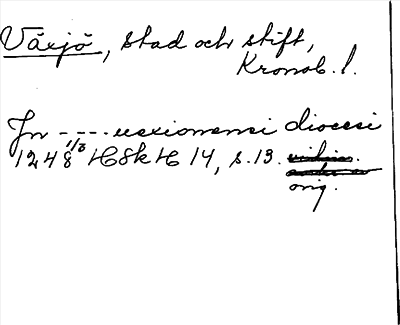 Växjö, stad och stift,
Kronob. l.
Jn ---- uexionensi diocesi
1248 1/3 HSkH 14, s. 13.
orig.